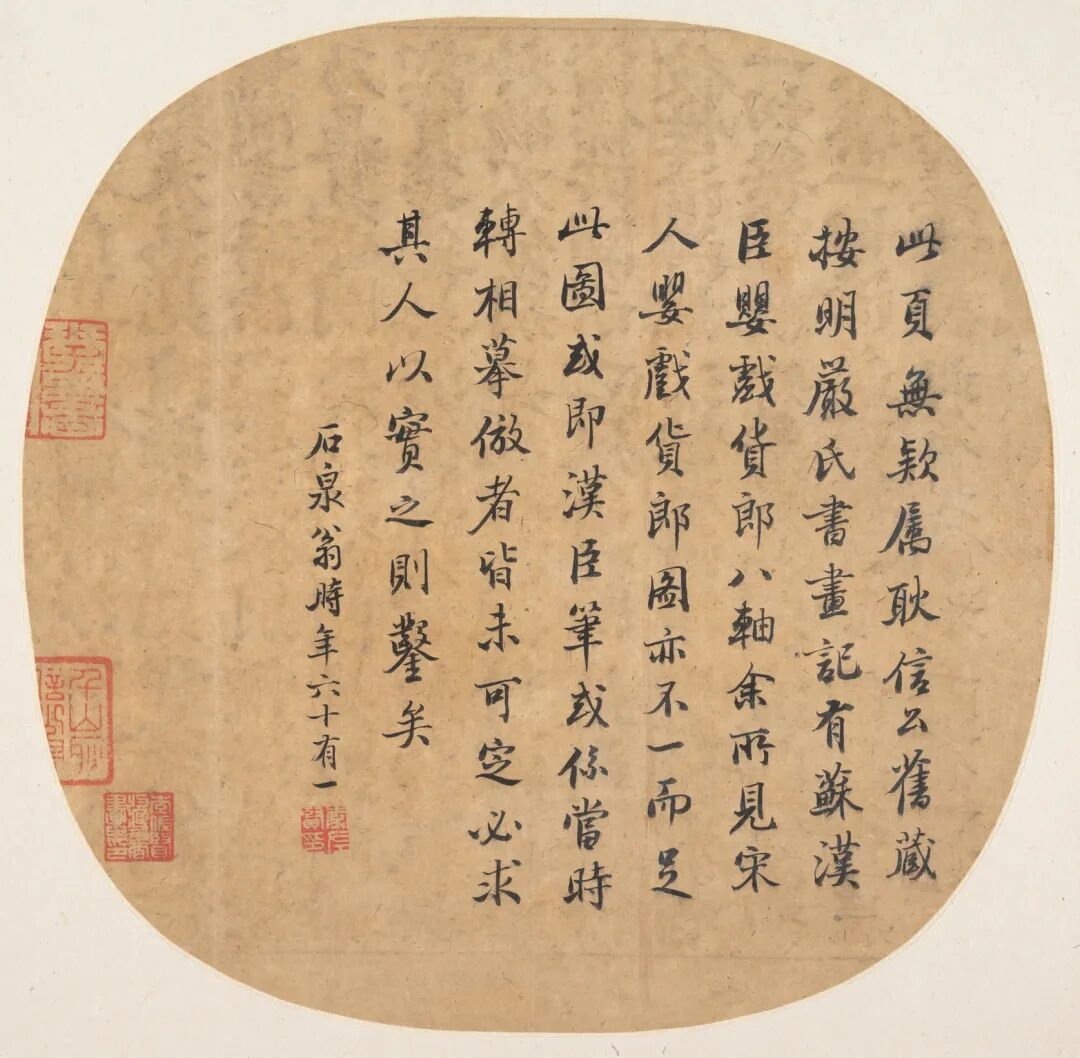 此頁無欵属耿信公舊藏
按明嚴氏書畫記有蘇漢
臣嬰戲貨郎八軸余所見宋
人嬰戲貨郎圖亦不一而足
此圖或即漢臣筆或係當時
轉相摹倣者皆未可定必求
其人以實之則鑿矣
石泉翁時年六十有一